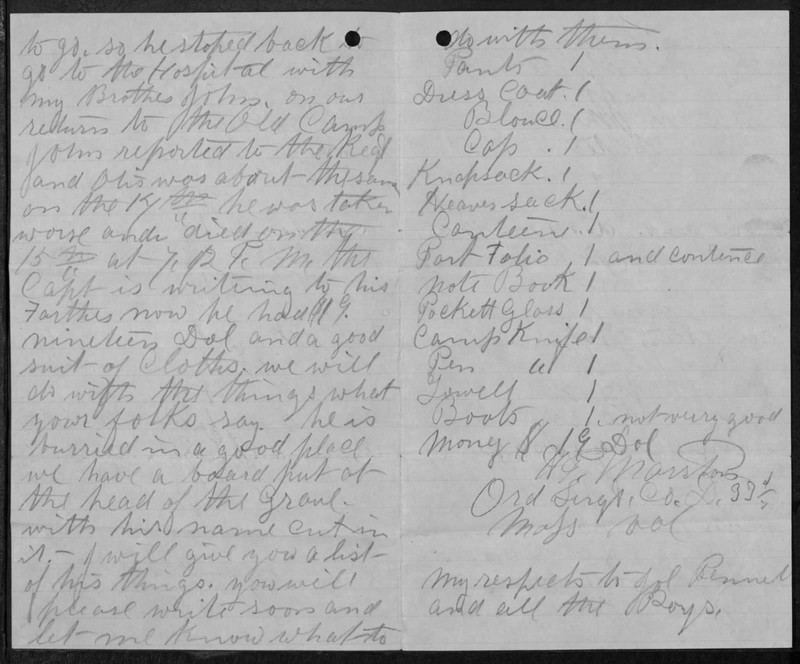 to go. so he stoped back to
go to the Hospital with
my Brother John. on our
return to the Old Camp
John reported to the Regt
and Otis was about the same
on the 14th he was taken
worse and died on the
15th at 7, P. M. the
Capt is writing to his
Farther now he had $19.
nineteen Dol and a good
suit of Cloths. we will
do with the things what
your folks say. he is
burried in a good place
we have a board put at
the head of the Grave.
with his name cut in
it. - I will give you a list
of his things. you will
please write soon and
let me know what to
do with them.
Pants 1
Dress Coat. 1
Blouce. 1
Cap. 1
Knapsack. 1
Heaversack. 1
Canteen. 1
Port Folio 1 and contence
note Book 1
Pockett Glass 1
Camp Knife 1
Pen " 1
Towell 1
Boots 1. not very good
Mony $ 19 Dol
Marston
Ord Sergt. Co. D. 33d
Mass Vol
My respects to
and all the Boys.